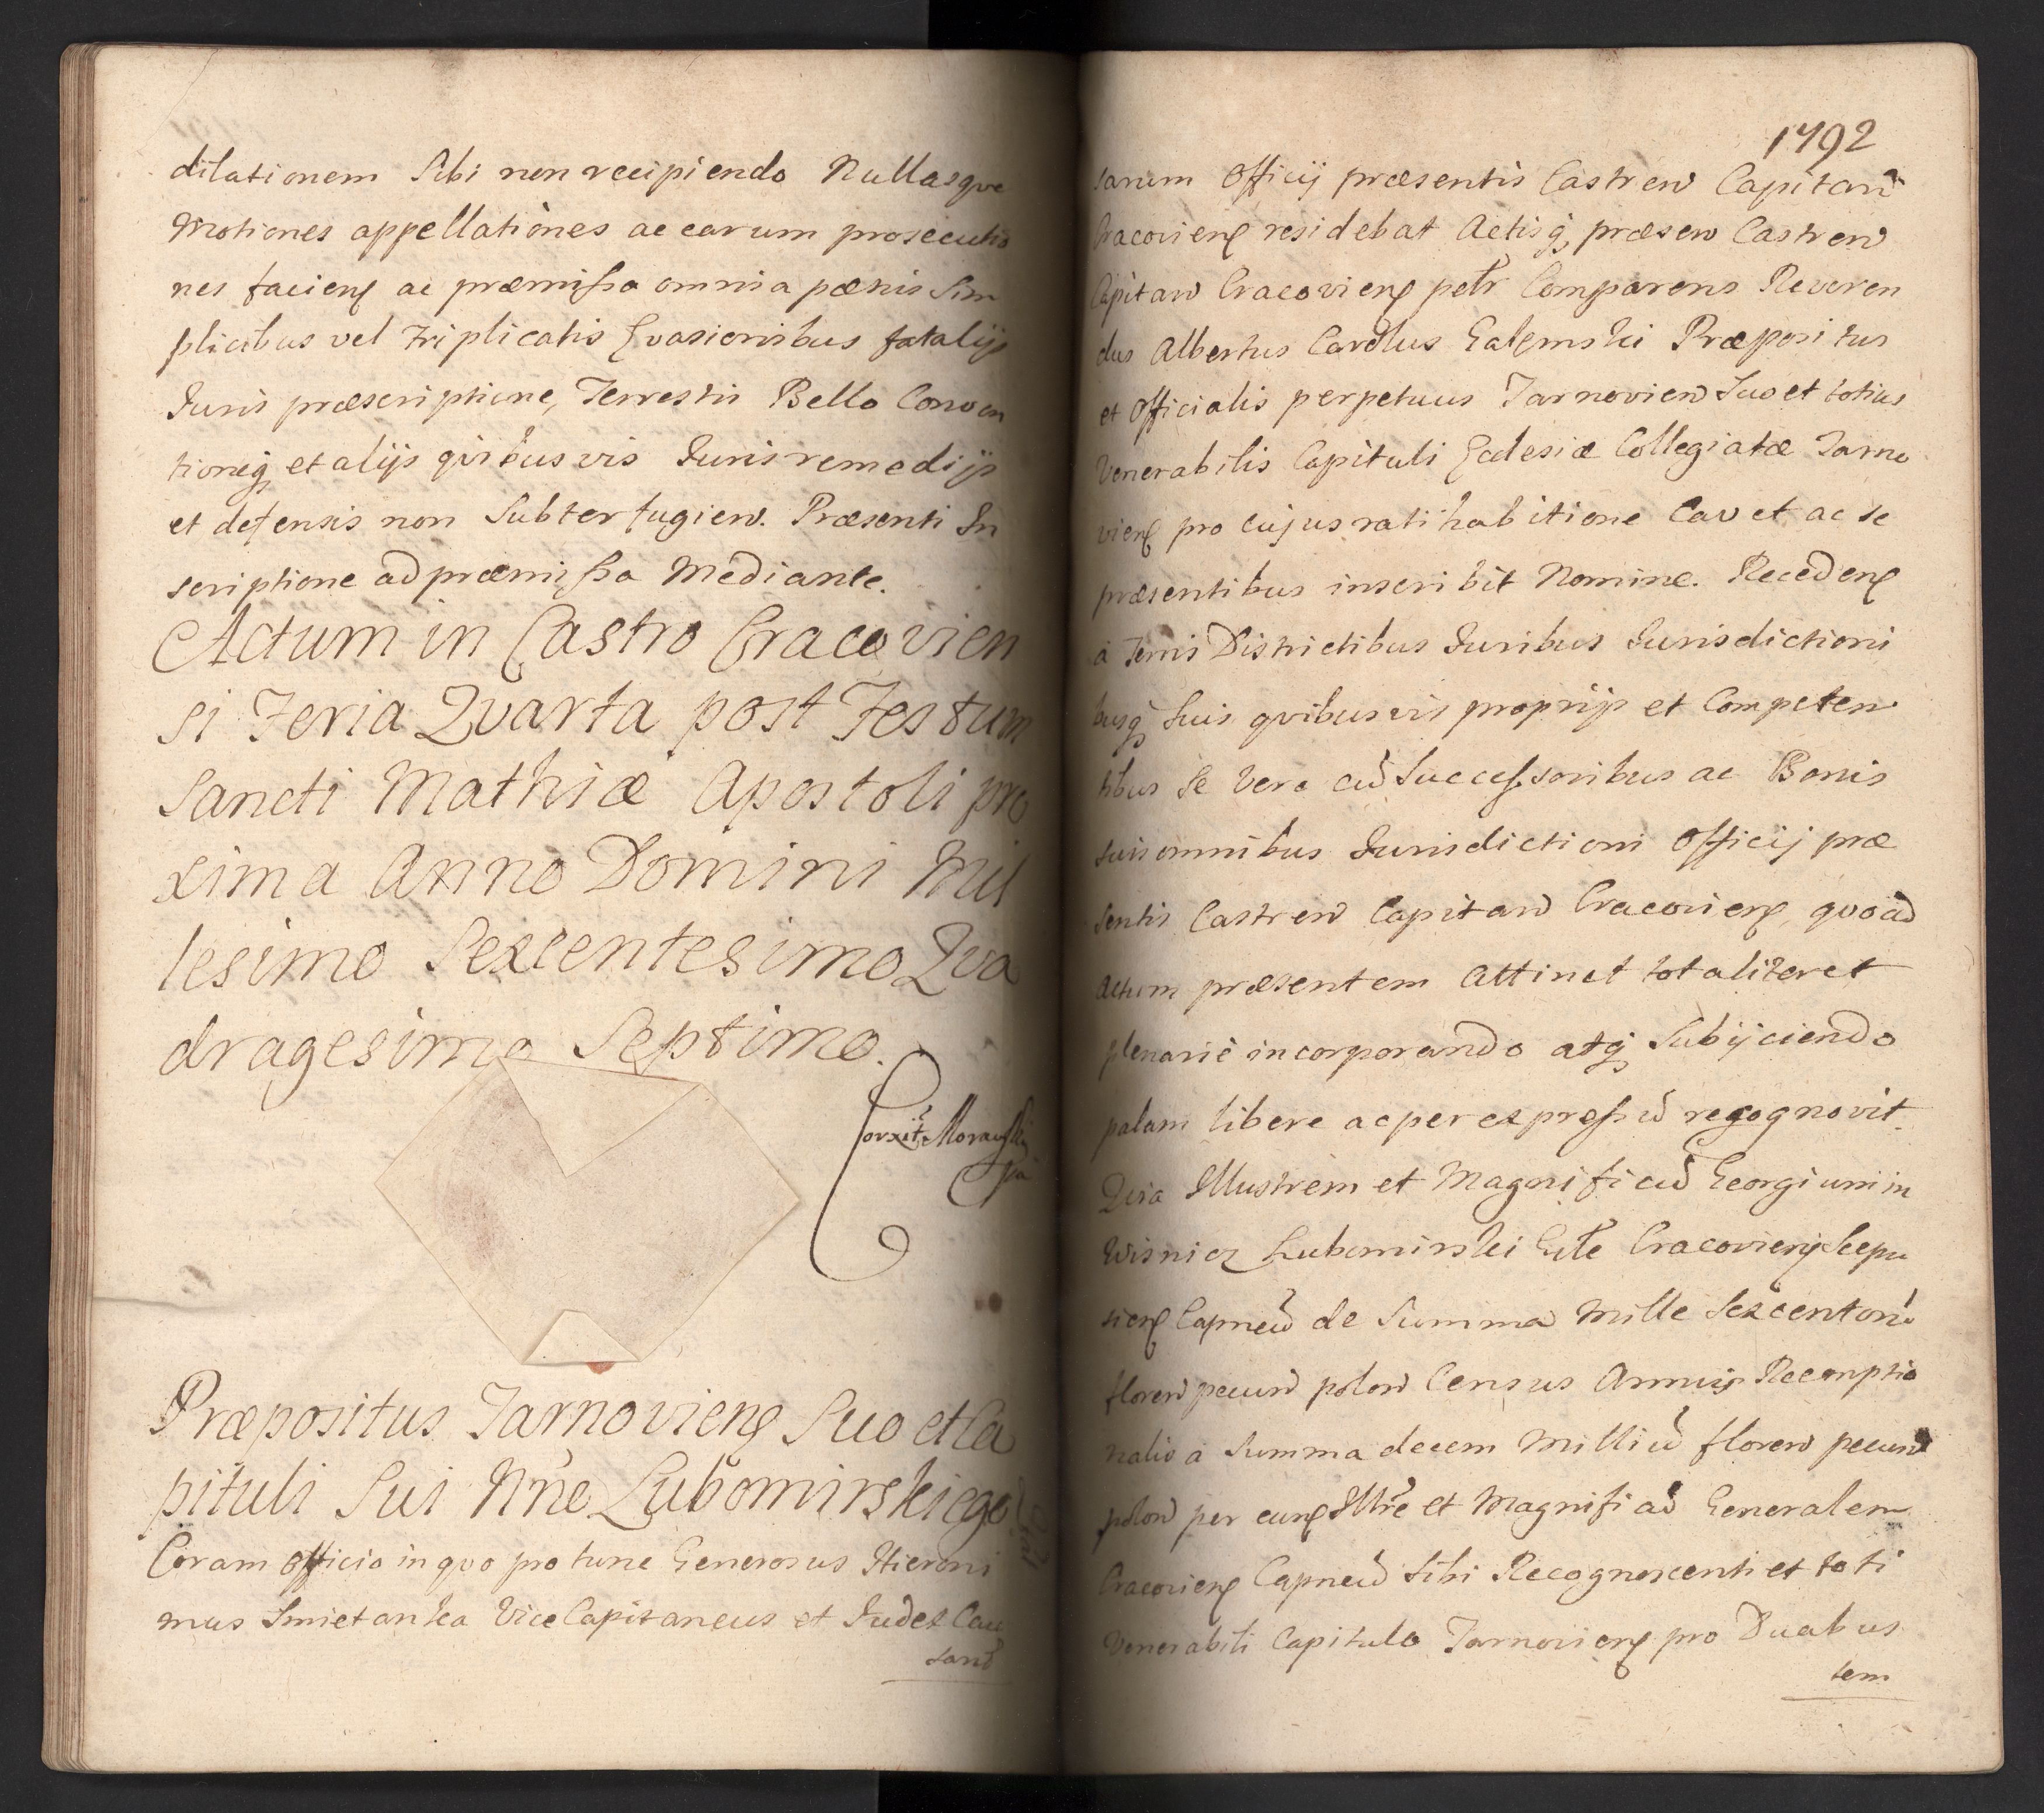 dilationem Sibi non recipiendo Nullasque
Motiones appellationes ac earum prosecutio
nes facienȩ ac præmissa omnia pænis Sim
plicibus vel triplicatis Evasionibus fatalijs
Juris præscriptione, Terrestris Bello Conven
tioneq; et alijs quibusvis Juris remedijs
et defensis non Subterfugien. Præsenti In
scriptione ad præmissa Mediante.
Actum in Castro Cracovien
si Feria Qvarta post Festum
Sancti Mathiæ Apostoli pro
xima Anno Domini Mil
lesimo Sexcentesimo Qva
dragesimo Septimo.
Corxit Morawski
Præpositus Tarnovienȩ Suo et Ca
pituli Sui Nñe Lubomirskiego
Coram Officio in qvo pro tunc Generosus Hieroni
mus Smietanka Vice Capitaneus et Judex Cau
sarũ
1792
sarum Officij præsentis Castren Capitan
Cracovienȩ residebat Actisq; præsen Castren
Capitan Cracovienȩ petr Comparens Reveren
dus Albertus Carolus Galemski Præpositus
et Officialis perpetuus Tarnovien Suo et totius
Venerabilis Capituli Ecclesiæ Collegiatæ Tarno
vienȩ pro cujus ratihabitione Cavet ac se
præsentibus inscribit Nomine. Recedenȩ
à Terris Districtibus Juribus Jurisdictioni
busq; Suis qvibusvis proprijs et Competen
tibus Se Vero cũ Successoribus ac Bonis
suis omnibus Jurisdictioni Officij præ
sentis Castren Capitan Cracovienȩ, qvoad
Actum præsentem Attinet totaliter et
plenariè incorporando atq; Subijciendo
palam libere ac per expressũ recognovit.
Qvia Illustrem et Magnificũ Georgium in
Wisnicz Lubomirski Gñle Cracovienȩ Scepu
sienȩ Capneũ de Summa Mille Sexcentorũ
floren pecun polon Census Annuij Reemptio
nalis a Summa decem Milliũ floren pecun
polon per eunȩ Illtre et Magnificũ Generalem
Cracovienȩ Capneũ Sibi Recognoscenti et toti
Venerabili Capitulo Tarnovienȩ pro Duabus
tem